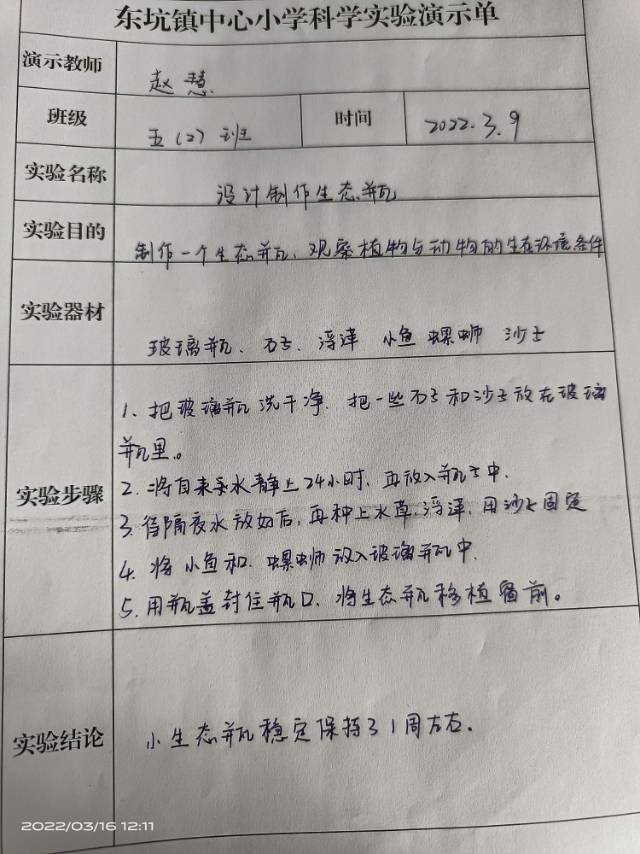 东坑镇中心小学科学实验演示单
演示教师 赵慧
班级 五(2)班 时间 2022.3.9
实验名称 设计制作生态瓶
实验目的 制作一个生态瓶、观察植物与动物的生存环境条件
实验器材 玻璃瓶、石子、浮萍 小鱼 螺蛳 沙子
实验步骤
1、把玻璃瓶洗干净、把一些石子和沙子放在玻璃
瓶里。
2、将自来水静止24小时、再放入瓶子中、
3、待隔夜水放好后,再种上水草、浮萍、用沙子固定
4、将小鱼和、螺蛳放入玻璃瓶中、
5、用瓶盖封住瓶口、将生态瓶移植窗前。
实验结论 小生态瓶稳定保持了1周左右.
2022/03/16 12:11